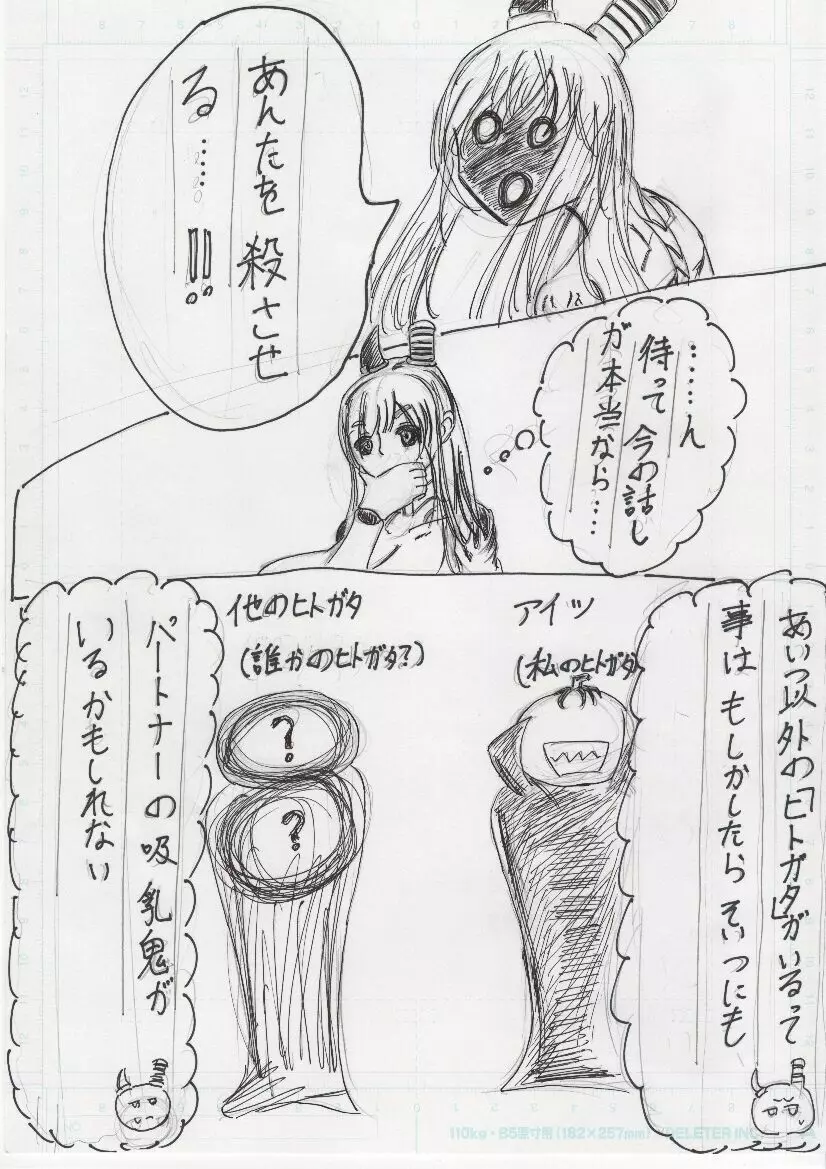 あんたを殺させ
る……!!
……ん
待って今の話し
が本当なら……
あいつ以外の「ヒトガタ」がいるって
事はもしかしたらそいつにも
アイツ
(私のヒトガタ)
他のヒトガタ
(誰かのヒトガタ?)
?
?
パートナーの吸乳鬼が
いるかもしれない
110kg・B5原寸用(182×257mm) DELETER INC.